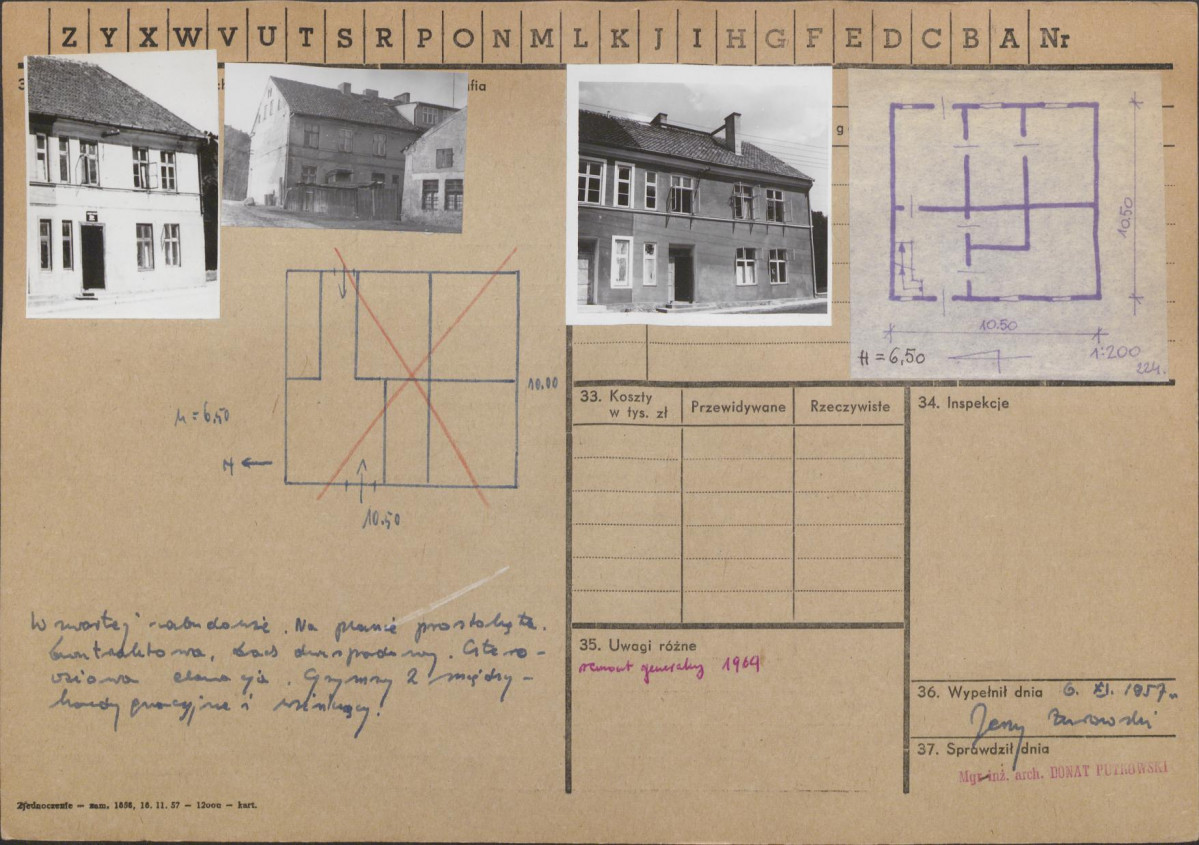 Z Y X W V U T S R P O N M L K J I H G F E D C B A Nr
3
ch
fia
g
10.50
10.50
H = 6,50
1:200
224.
10.00
H = 6,50
N
10.50
33. Koszty
w tys. zł
Przewidywane
Rzeczywiste
34. Inspekcje
W zwartej zabudowie. Na planie prostokąta.
dwutraktowa, dach dwuspadowy. Cztero-
osiowa elewacja. Gzymsy 2 między-
kondygnacyjne i wieńczący.
35. Uwagi różne
remont generalny 1969
36. Wypełnił dnia 6. XI. 1957 r.
Jerzy
37. Sprawdził dnia
Mgr inż. arch. DONAT PUTKOWSKI
Zjednoczenie — zam. 1656, 16. 11. 57 — 12000 — kart.